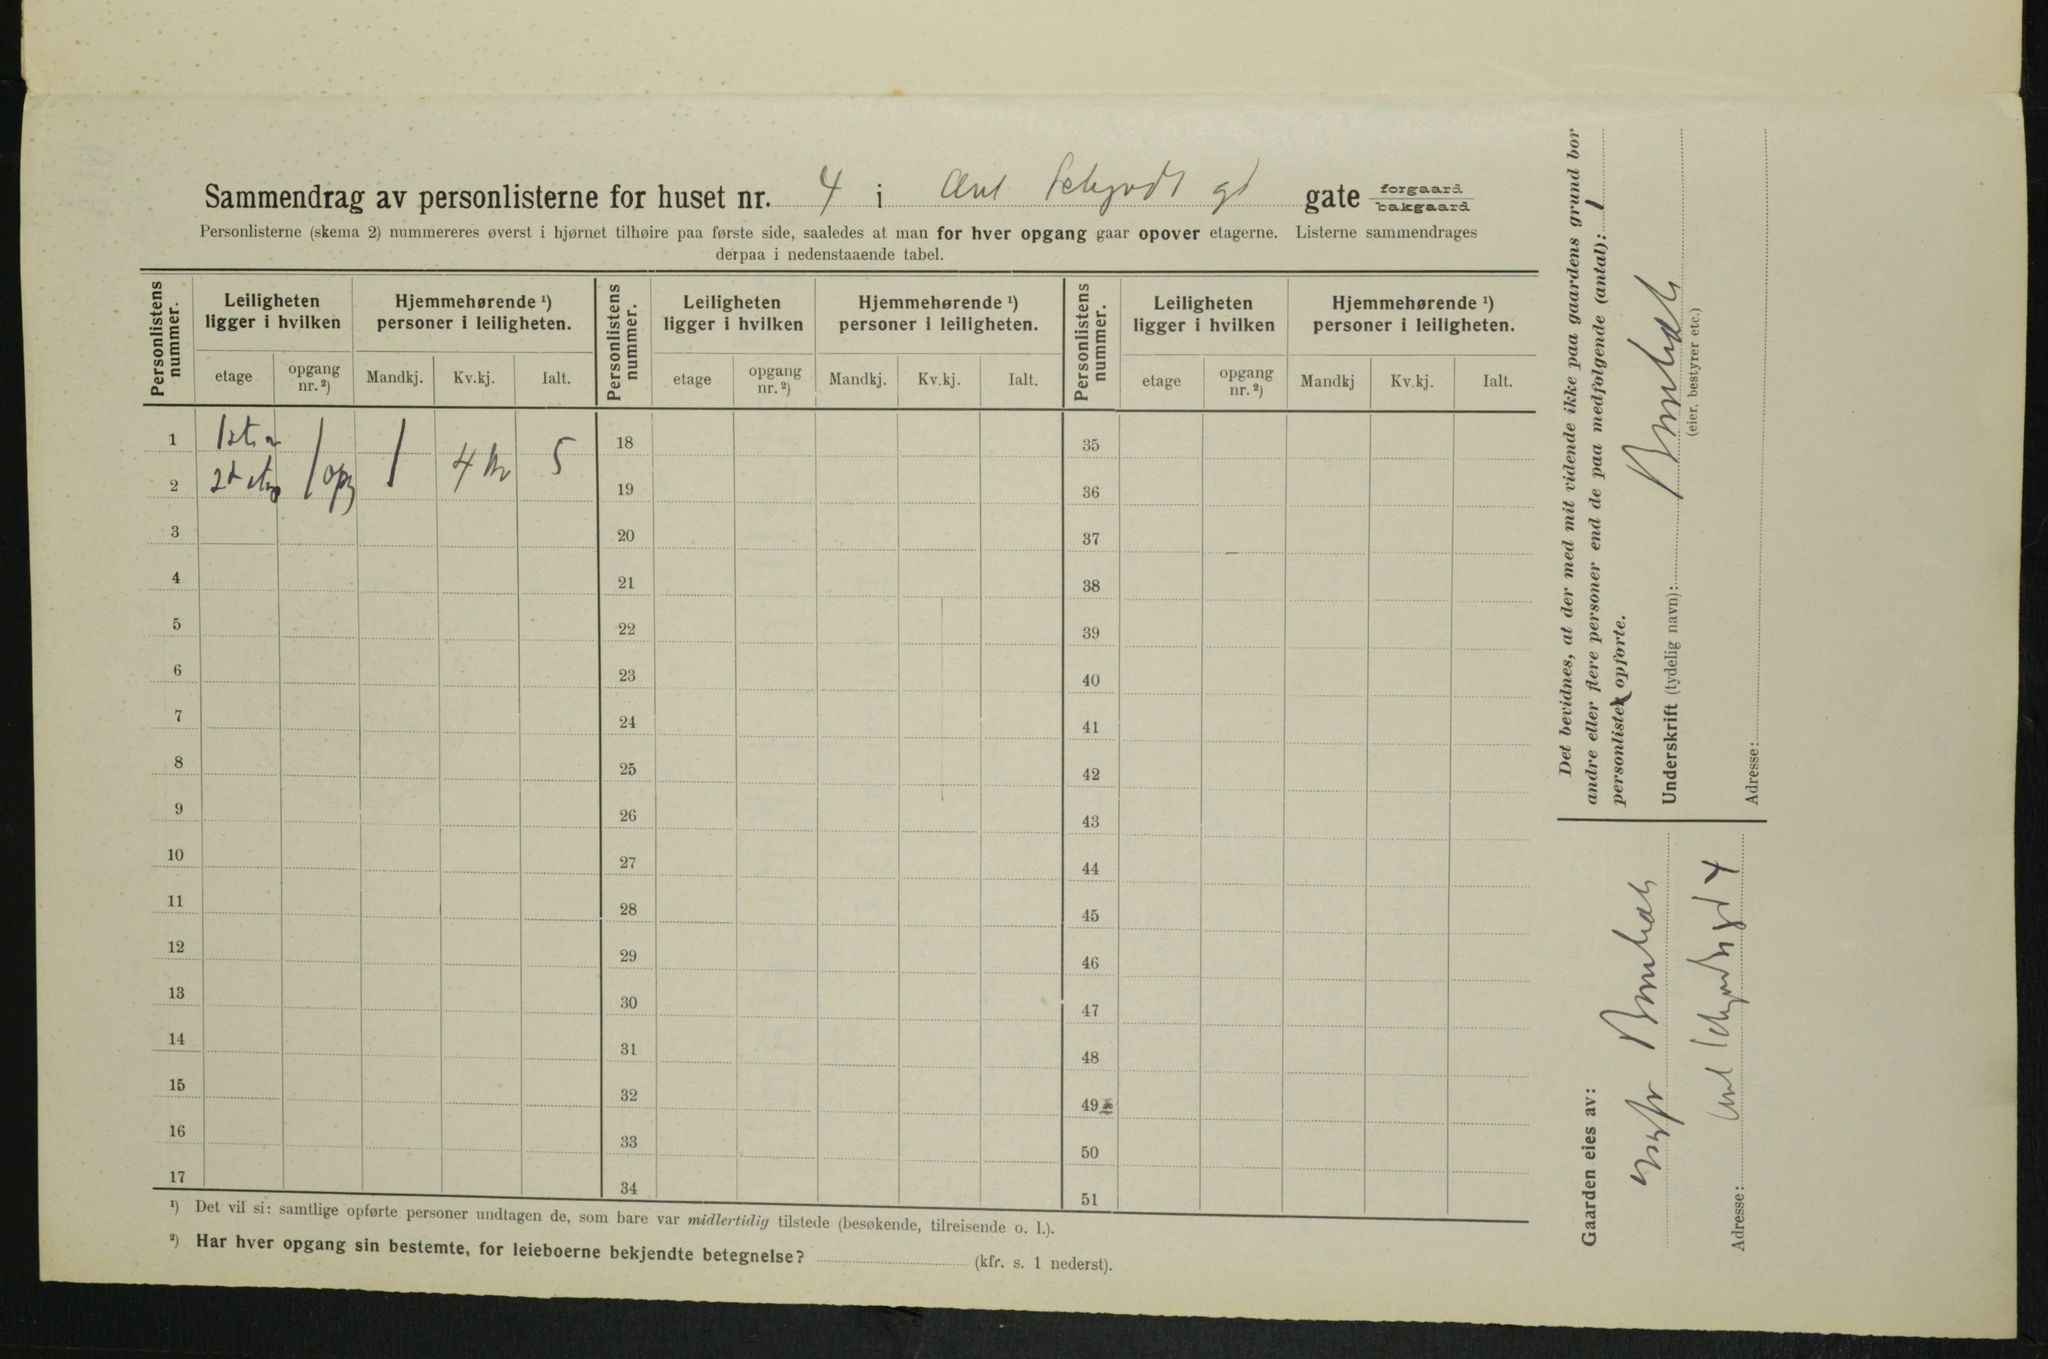 Sammendrag av personlisterne for huset nr. 4 i Ant Schjødt gd gate forgaard bakgaard
Personlisterne (skema 2) nummereres øverst i hjørnet tilhøire paa første side, saaledes at man for hver opgang gaar opover etagerne. Listerne sammendrages
derpaa i nedenstaaende tabel.
Personlistens nummer. Leiligheten ligger i hvilken Hjemmehørende ¹) personer i leiligheten. Personlistens nummer. Leiligheten ligger i hvilken Hjemmehørende ¹) personer i leiligheten. Personlistens nummer. Leiligheten ligger i hvilken Hjemmehørende ¹) personer i leiligheten.
etage opgang nr. ²) Mandkj. Kv.kj. Ialt. etage opgang nr. ²) Mandkj. Kv.kj. Ialt. etage opgang nr. ²) Mandkj Kv.kj. Ialt.
1 18 35
2 1 opg 1 4 5 19 36
3 20 37
4 21 38
5 22 39
6 23 40
7 24 41
8 25 42
9 26 43
10 27 44
11 28 45
12 29 46
13 30 47
14 31 48
15 32 49
16 33 50
17 34 51
¹) Det vil si: samtlige opførte personer undtagen de, som bare var midlertidig tilstede (besøkende, tilreisende o. l.).
²) Har hver opgang sin bestemte, for leieboerne bekjendte betegnelse? (kfr. s. 1 nederst).
Det bevidnes, at der med mit vidende ikke paa gaardens grund bor
andre eller flere personer end de paa medfølgende (antal): 1
personlister opførte.
Underskrift (tydelig navn):
(eier, bestyrer etc.)
Adresse:
Gaarden eies av:
Adresse: Ant Schjødts gd 4